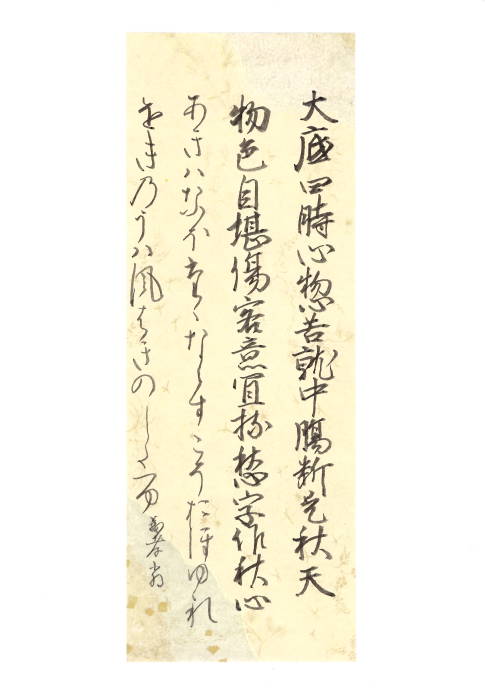 大底四時心惣苦就中腸断是秋天
物色自堪傷客意宜将愁字作秋心
あきハなほたゝならすこそおほゆれ
をきのうハ風はきのした